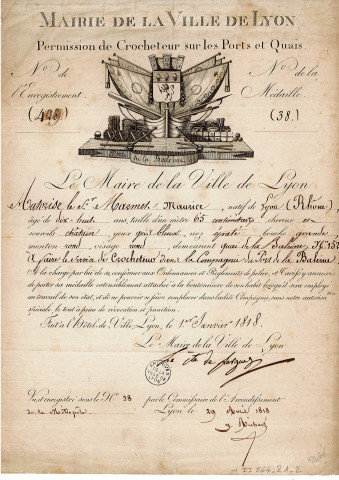 MAIRIE DE LA VILLE DE LYON
Permission de Crocheteur sur les Ports et Quais.
N.º de l'Enregistrement.
N.º de la Médaille.
(38.)
de la Baleine
Le Maire de la Ville de Lyon
Autorise le S.r Marmet, Maurice, natif de Lyon (Rhône)
âgé de dix-huit ans, taille d'un mètre 65 centimètres, cheveux et
sourcils châtain, yeux gris bleux, nez épaté, bouche grande
menton rond, visage rond, demeurant quai de la Baleine, N.º
à faire le service de Crocheteur dans la Compagnie du Port de la Baleine
à la charge par lui de se conformer aux Ordonnances et Réglements de police, et Tarifs y annexés
de porter sa médaille ostensiblement attachée à la boutonnière de son habit lorsqu'il sera employé
au travail de son état, et de ne pouvoir se faire remplacer dans ladite Compagnie, sans notre autorisation
spéciale, le tout à peine de révocation et punition.
Fait à l'Hôtel-de-Ville, Lyon, le 1.er Janvier 1818.
Le Maire de la Ville de Lyon
Vu et enregistré sous le N.º 38 par le Commissaire de l'Arrondissement
de la Métropole Lyon, le 29 1818